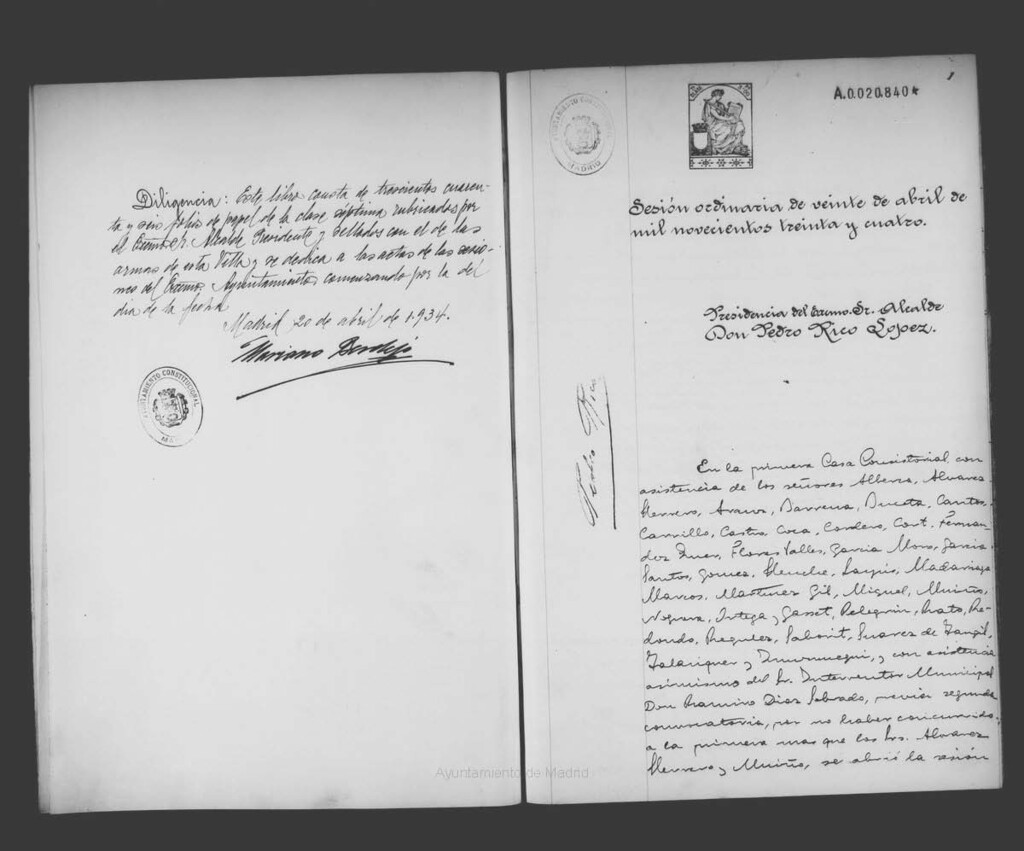 Diligencia: Este libro consta de trescientos cuaren-
ta y seis folios de papel de la clase séptima rubricados por
el Excmo. Sr. Alcalde Presidente y sellados con el de las
armas de esta Villa y se dedica a las actas de las sesio-
nes del Excmo. Ayuntamiento comenzando por la del
día de la fecha
Madrid 20 de abril de 1.934.
Mariano Berdejo
AYUNTAMIENTO CONSTITUCIONAL
MADRID
AYUNTAMIENTO CONSTITUCIONAL
MADRID
Pedro Rico
1
A.0.020.840*
Sesión ordinaria de veinte de abril de
mil novecientos treinta y cuatro.
Presidencia del Excmo. Sr. Alcalde
Don Pedro Rico Lopez.
En la primera Casa Consistorial, con
asistencia de los señores Alberca, Alvarez
Herrero, Arauz, Barrena, Buceta, Cantos,
Carrillo, Castro, Coca, Cordero, Cort, Fernan-
dez Quer, Flores Valles, Garcia Moro, Garcia
Santos, Gomez, Henche, Layús, Madariaga
Marcos, Martinez Gil, Miguel, Muiño,
Noguera, Ortega y Gasset, Pelegrin, Prato, Re-
dondo, Regulez, Saborit, Suarez de Tangil,
Talanquer y Zunzunegui, y con asistencia
asimismo del Sr. Interventor Municipal
Don Ramiro Diaz Sobrado, previa segunda
convocatoria, por no haber concurrido
a la primera mas que los Srs. Alvarez
Herrero y Muiño, se abrió la sesión
Ayuntamiento de Madrid